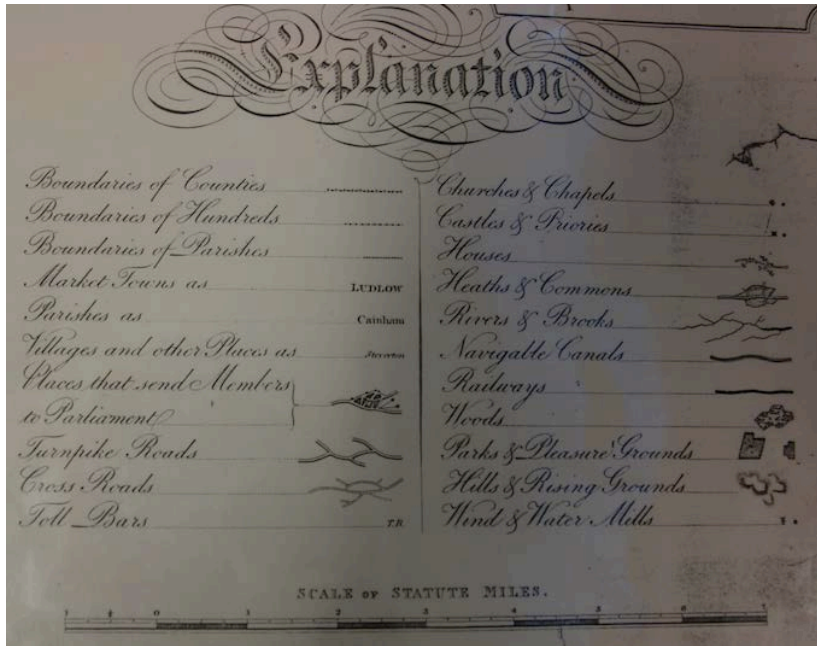 Explanation
Boundaries of Counties
Boundaries of Hundreds
Boundaries of Parishes
Market Towns as LUDLOW
Parishes as Cainham
Villages and other Places as
Places that send Members
to Parliament
Turnpike Roads
Cross Roads
Toll Bars T.B.
Churches & Chapels
Castles & Priories
Houses
Heaths & Commons
Rivers & Brooks
Navigable Canals
Railways
Woods
Parks & Pleasure Grounds
Hills & Rising Grounds
Wind & Water Mills
SCALE OF STATUTE MILES.
1 0 1 2 3 4 5 6 7